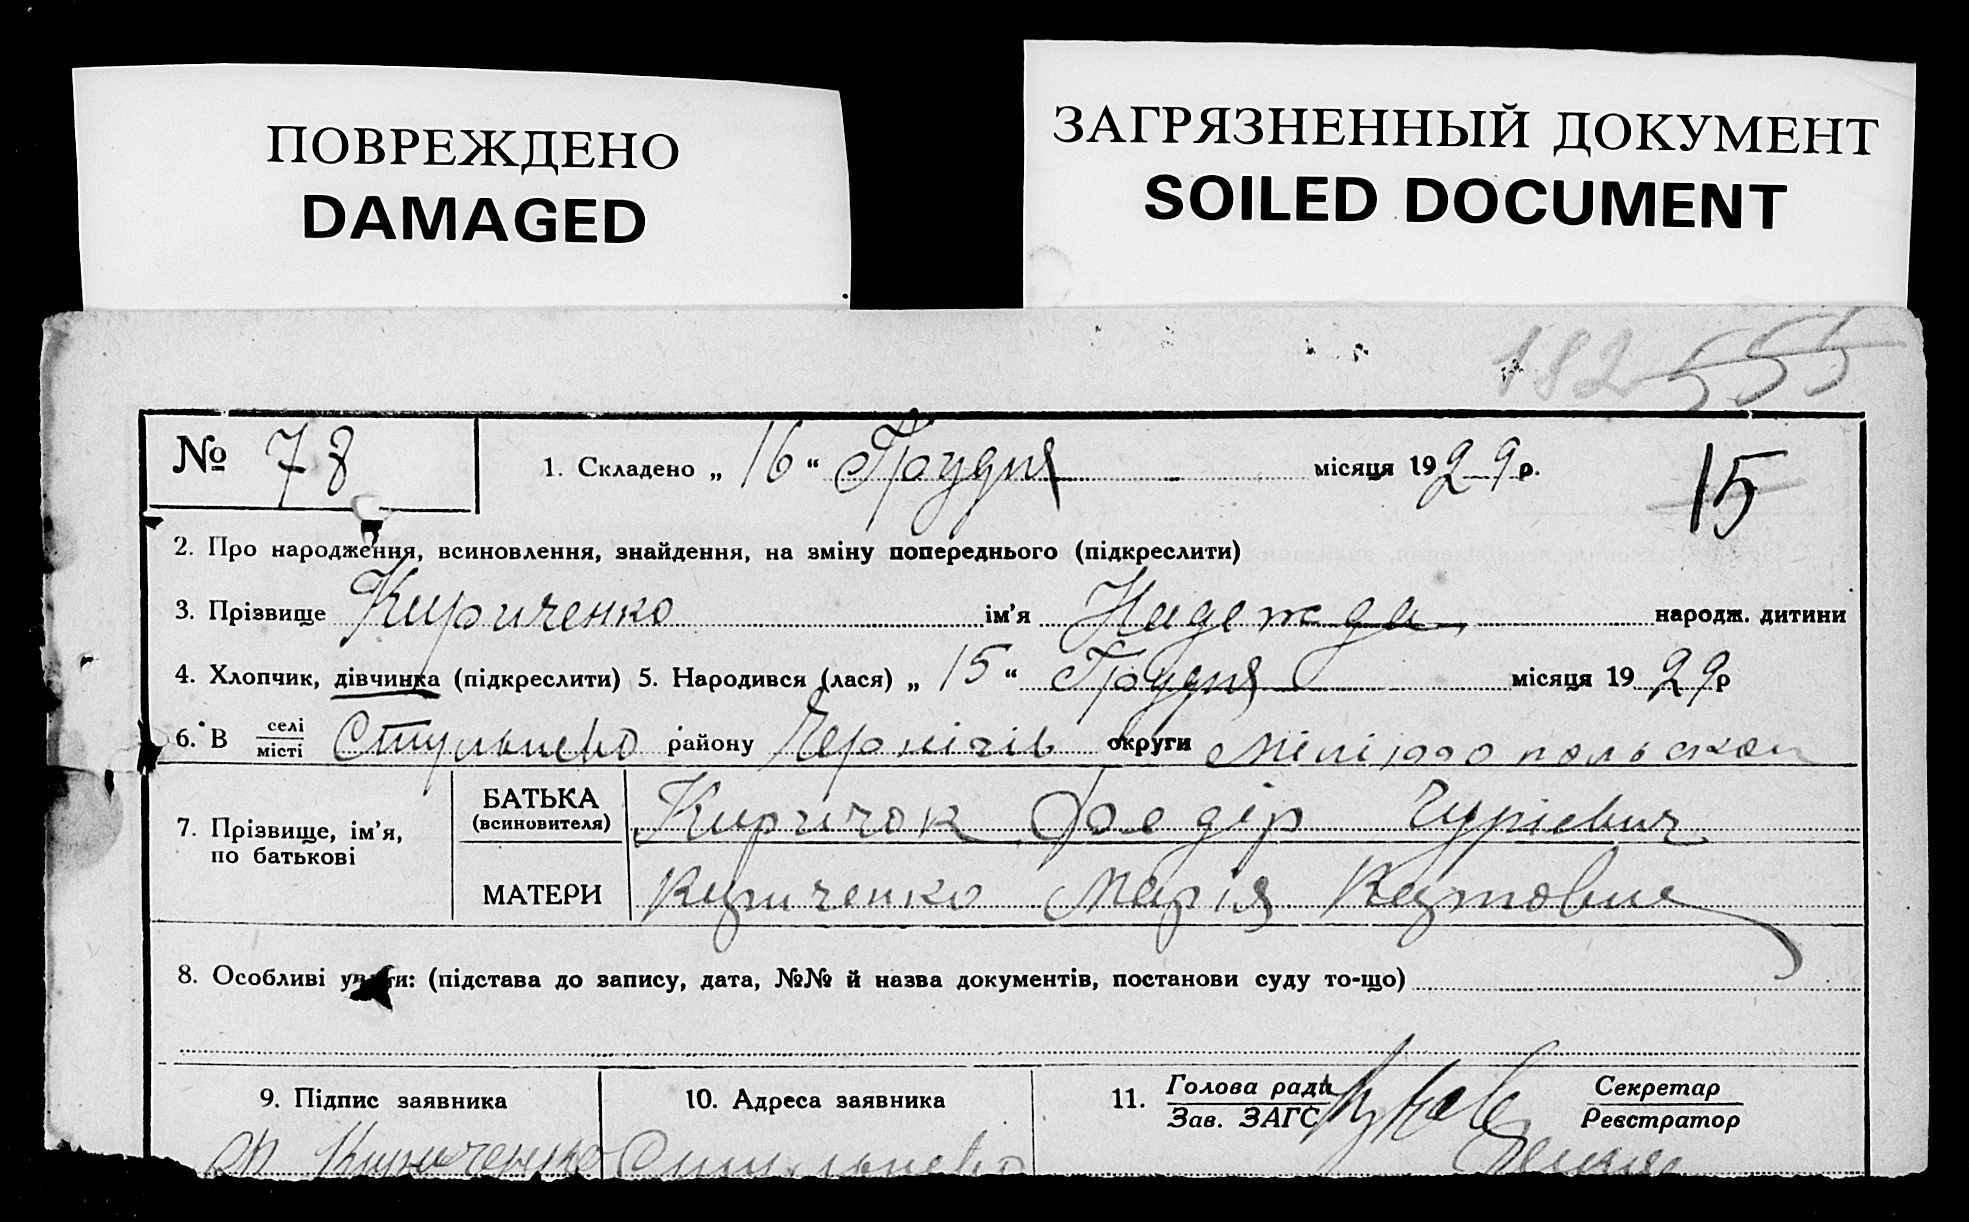 ПОВРЕЖДЕНО
DAMAGED
ЗАГРЯЗНЕННЫЙ ДОКУМЕНТ
SOILED DOCUMENT
182 555
№ 78
1. Складено „ 16 “ Грудня місяця 1929 р.
15
2. Про народження, всиновлення, знайдення, на зміну попереднього (підкреслити)
3. Прізвище Кириченко ім’я Надежда народж. дитини
4. Хлопчик, дівчинка (підкреслити) 5. Народився (лася) „ 15 “ Грудня місяця 1929 р
6. В селі місті Стульнево району Чернігів округи
7. Прізвище, ім’я, по батькові
БАТЬКА (всиновителя) Киричок Федір Гурієвич
МАТЕРИ Кириченко Марія
8. Особливі уваги: (підстава до запису, дата, №№ й назва документів, постанови суду то-що)
9. Підпис заявника
10. Адреса заявника
11. Голова ради Зав. ЗАГС
Секретар Реєстратор
Кириченко